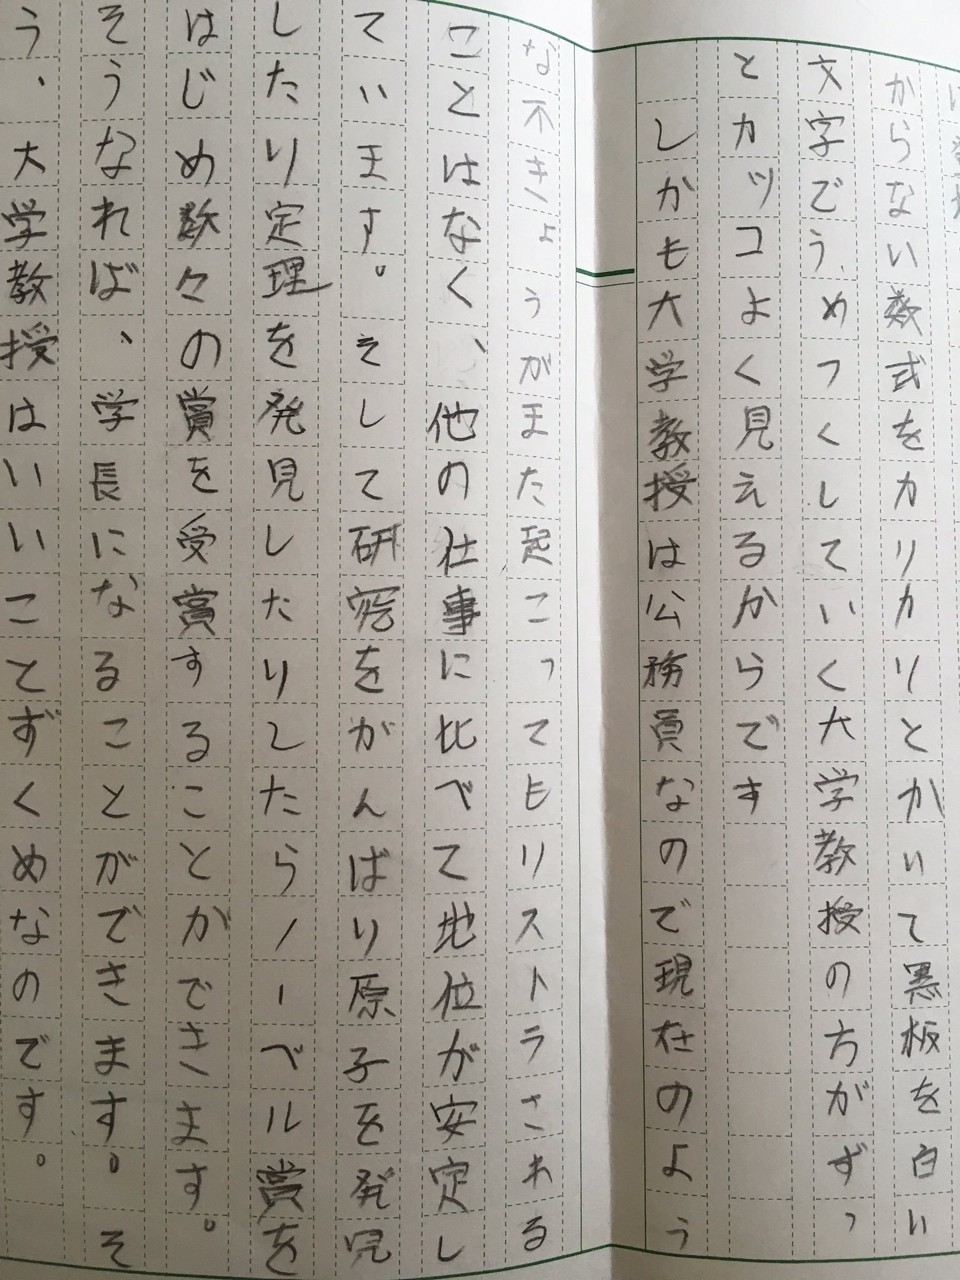 からない数式をカリカリとかいて黒板を白い
文字でうめつくしていく大学教授の方がずっ
とカッコよく見えるからです
しかも大学教授は公務員なので現在のよう
な不きょうがまた起こってもリストラされる
ことはなく、他の仕事に比べて地位が安定し
ています。そして研究をがんばり原子を発見
したり定理を発見したりしたらノーベル賞を
はじめ数々の賞を受賞することができます。
そうなれば、学長になることができます。そ
う、大学教授はいいことずくめなのです。